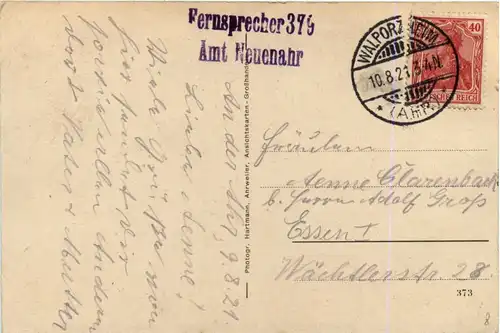 Fernsprecher 379
Amt Neuenahr
WALPORZHEIM
10.8.21 3-4 N.
* (AHR) *
40
DEUTSCHES REICH
An der Ahr, 9.8.21.
Liebe Aenne!
Viele Grüße von
hier sendet Dir
Vater & Mutter
Photogr. Hartmann, Ahrweiler, Ansichtskarten - Großhandl
Fräulein
Aenne Clarenbach
b/ Herrn Adolf Groß
Essen I
Wächtlerstr 28.
373
8